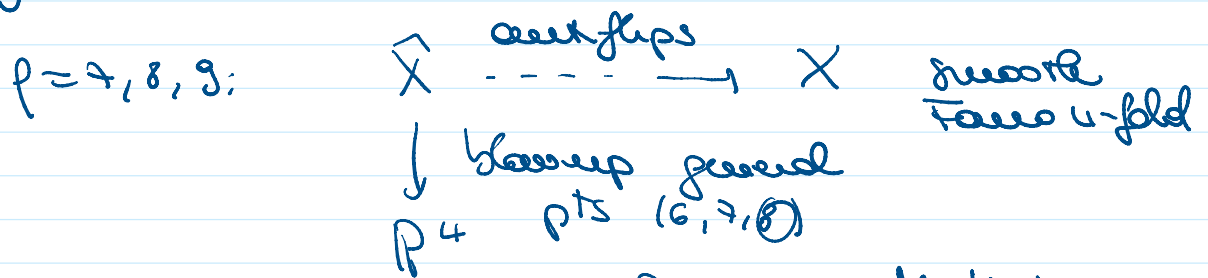 ρ = 7, 8, 9: X̂ antiflips ⇢ X smooth
Fano 4-fold
↓ blow up general
P⁴ pts (6, 7, 8)